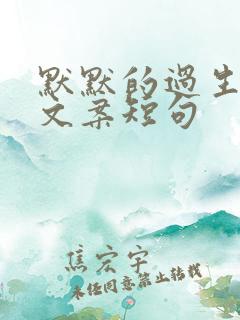 默默的過生
文案短句
焦宏宇
未经同意禁止转载